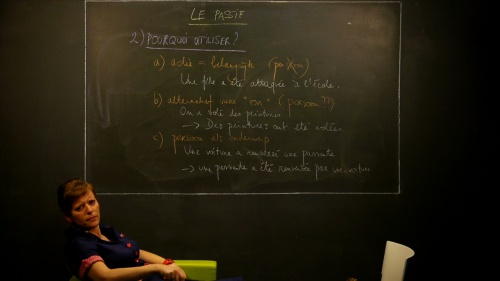 LE PASSIF
2) POURQUOI UTILISER?
a) actie = belangrijk
Une fille a été attaquée à l'école.
b) alternatief voor "on" (persoon ??)
On a volé des peintures
→ Des peintures ont été volées
c) persoon als onderwerp
Une voiture a renversé une passante
→ une passante a été renversée par une voiture